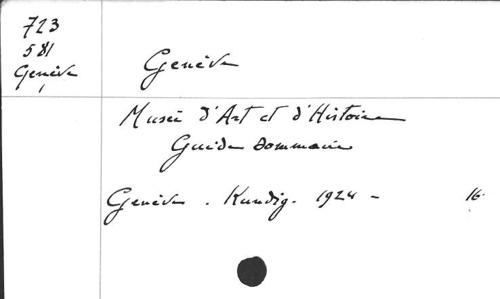 723
581
Genève
Genève
Musée d'Art et d'Histoire
Guide Sommaire
Genève. Kundig. 1924 - 16